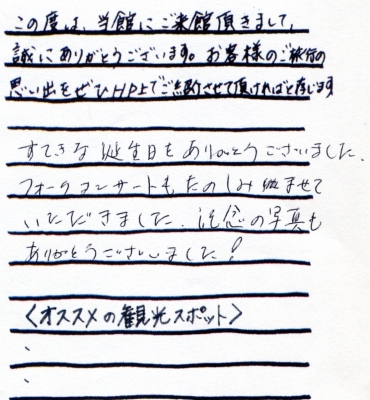 この度は、当館にご来館頂きまして、
誠にありがとうございます。お客様のご旅行の
思い出をぜひHP上でご紹介させて頂ければと存じます
すてきな誕生日をありがとうございました。
フォークコンサートもたのしみ
いただきました。記念の写真も
ありがとうございました!
<オススメの観光スポット>
、
、